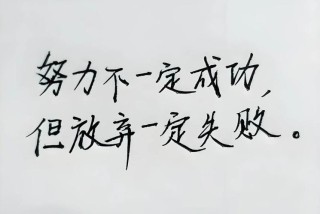 努力不一定成功,
但放弃一定失败。